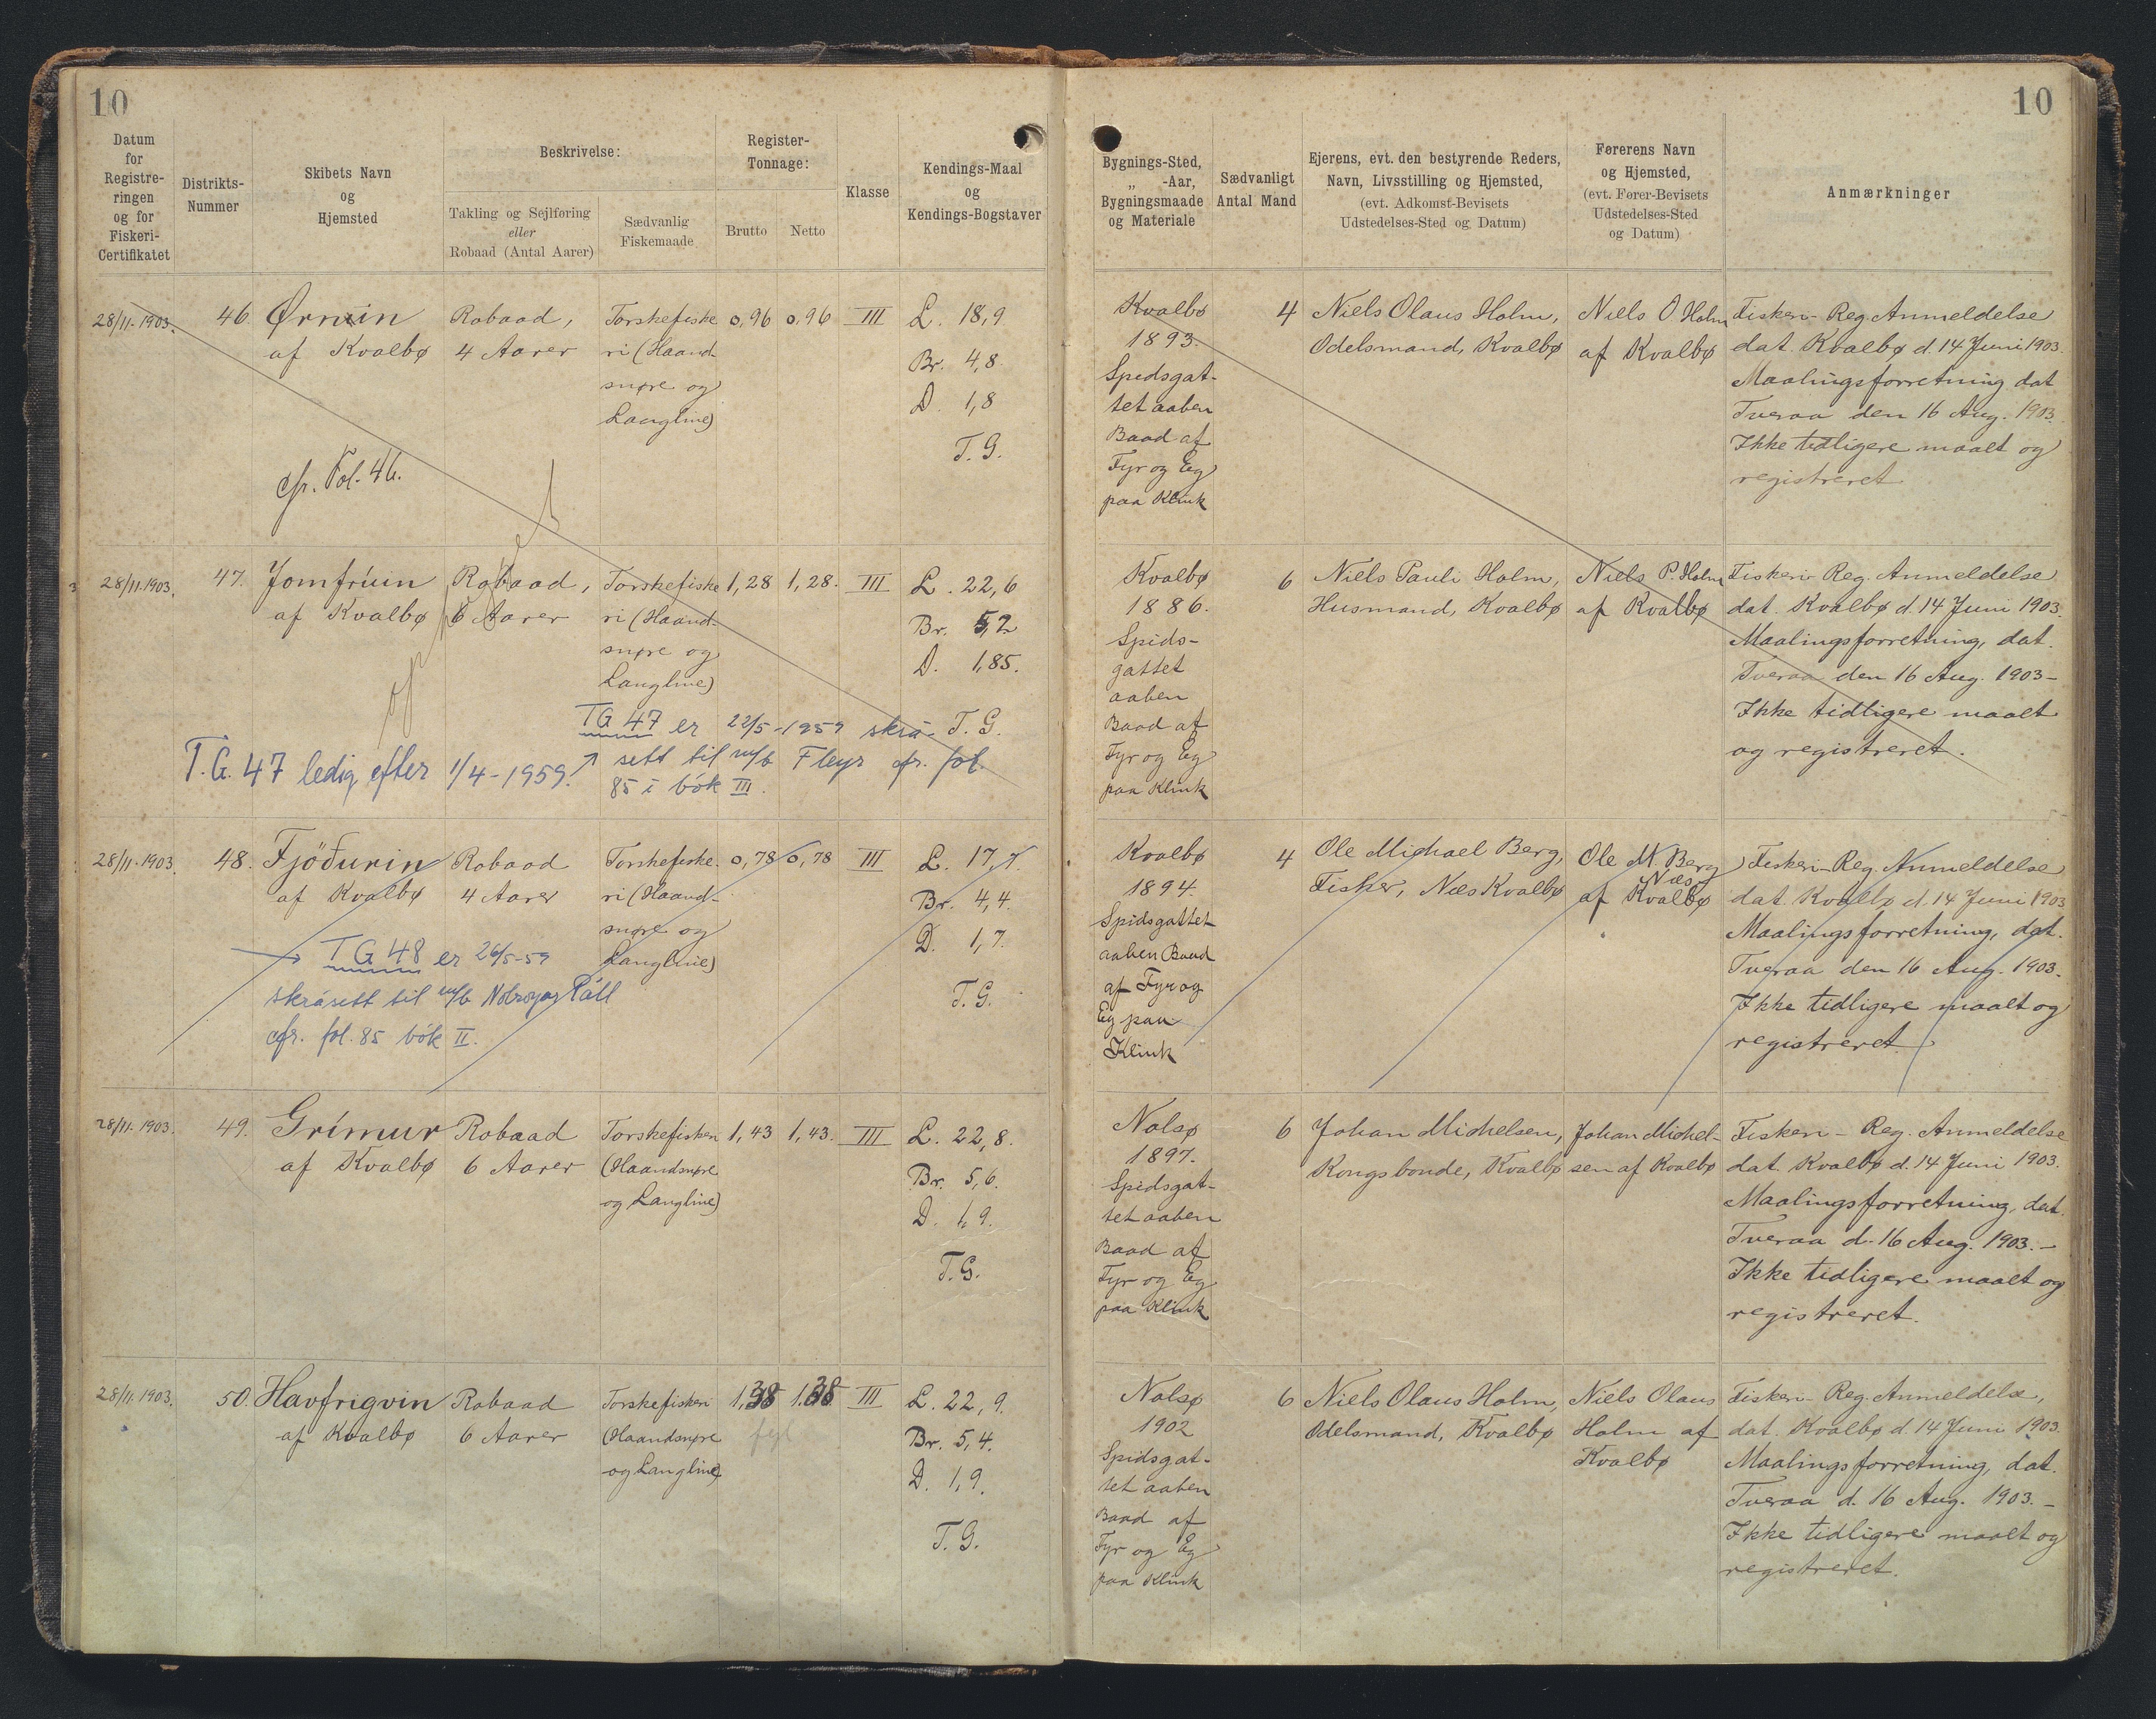 10
10
Datum
for
Registre-
ringen
og for
Fiskeri-
Certifikatet
Distrikts-
Nummer
Skibets Navn
og
Hjemsted
Beskrivelse:
Takling og Sejlføring
eller
Robaad (Antal Aarer)
Sædvanlig
Fiskemaade
Register-
Tonnage:
Brutto
Netto
Klasse
Kendings-Maal
og
Kendings-Bogstaver
Bygnings-Sted,
„ -Aar,
Bygningsmaade
og Materiale
Sædvanligt
Antal Mand
Ejerens, evt. den bestyrende Reders,
Navn, Livsstilling og Hjemsted,
(evt. Adkomst-Bevisets
Udstedelses-Sted og Datum)
Førerens Navn
og Hjemsted,
(evt. Fører-Bevisets
Udstedelses-Sted
og Datum)
Anmærkninger
28/11. 1903.
46.
Ørnuin
af Kvalbø
cfr. Fol. 46.
Robaad,
4 Aarer
Torskefiske
ri (Haand-
snøre og
Langline)
0,96
0,96
III
L. 18,9
Br. 4,8
D. 1,8
T. G.
Kvalbø
1893.
Spidsgat-
tet aaben
Baad af
Fyr og Eg
paa Klink
4
Niels Olaus Holm,
Odelsmand, Kvalbø
Niels O. Holm
af Kvalbø
Fiskeri-Reg. Anmeldelse
dat. Kvalbø d. 14 Juni 1903.
Maalingsforretning dat
Tveraa den 16 Aug. 1903.
Ikke tidligere maalt og
registreret
28/11. 1903.
47.
Jomfrúin
af Kvalbø
Robaad,
6 Aarer
Torskefiske
ri (Haand-
snøre og
Langline)
1,28
1,28.
III
L. 22,6
Br. 5,2
D. 1,85.
T. G.
T.G. 47 ledig efter 1/4-1959.
TG 47 er 22/5-1959 skrá-
sett til m/b Fleyr cfr. fol.
85 í bók III.
Kvalbø
1886.
Spids-
gattet
aaben
Baad af
Fyr og Eg
paa Klink
6
Niels Pauli Holm,
Husmand, Kvalbø
Niels P. Holm
af Kvalbø
Fiskeri-Reg. Anmeldelse
dat. Kvalbø d. 14 Juni 1903.
Maalingsforretning, dat.
Tveraa den 16 Aug. 1903-
Ikke tidligere maalt
og registreret.
28/11. 1903.
48.
Fjöðurin
af Kvalbø
Robaad
4 Aarer
Torskefiske-
ri (Haand-
snøre og
Langline)
0,78
0,78
III
L. 17,7.
Br. 4,4.
D. 1,7.
T. G.
TG 48 er 26/5-59
skrásett til m/b Nolsoyar Páll
cfr. fol. 85 bók II.
Kvalbø
1894.
Spidsgattet
aaben Baad
af Fyr og
Eg paa
Klink
4
Ole Michael Berg,
Fisker, Næs Kvalbø
Ole M. Berg
Næs
af Kvalbø
Fiskeri-Reg. Anmeldelse
dat. Kvalbø d. 14 Juni 1903
Maalingsforretning, dat.
Tveraa den 16 Aug. 1903.
Ikke tidligere maalt og
registreret.
28/11. 1903.
49.
Grímur
af Kvalbø
Robaad
6 Aarer
Torskefiskeri
(Haandsnøre
og Langline)
1,43
1,43.
III
L. 22,8.
Br. 5,6.
D. 1,9.
T. G.
Nolsø
1897.
Spidsgat-
tet aaben
Baad af
Fyr og Eg
paa Klink
6
Johan Michelsen,
Kongsbonde, Kvalbø
Johan Michel-
sen af Kvalbø
Fiskeri-Reg. Anmeldelse
dat. Kvalbø d. 14 Juni 1903.
Maalingsforretning, dat.
Tveraa d. 16 Aug. 1903.-
Ikke tidligere maalt og
registreret.
28/11. 1903.
50.
Havfrigvin
af Kvalbø
Robaad
6 Aarer
Torskefiskeri
(Haandsnøre
og Langline)
1,38
1.38
III
L. 22,9.
Br. 5,4.
D. 1,9.
T. G.
Nolsø
1902
Spidsgat-
tet aaben
Baad af
Fyr og Eg
paa Klink
6
Niels Olaus Holm,
Odelsmand, Kvalbø
Niels Olaus
Holm af
Kvalbø
Fiskeri-Reg. Anmeldelse,
dat. Kvalbø d. 14 Juni 1903.
Maalingsforretning, dat.
Tveraa d. 16 Aug. 1903.-
Ikke tidligere maalt og
registreret.